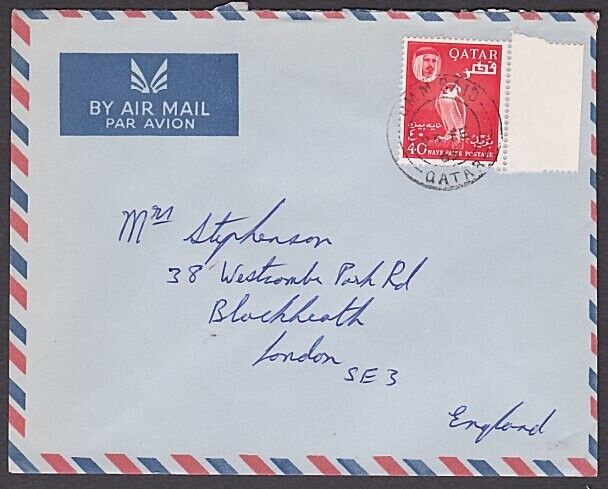 BY AIR MAIL
PAR AVION
QATAR
قطر
40 NAYE PAISE POSTAGE
QATAR
Mrs Stephenson
38 Westcombe Park Rd
Blackheath
London
SE3
England